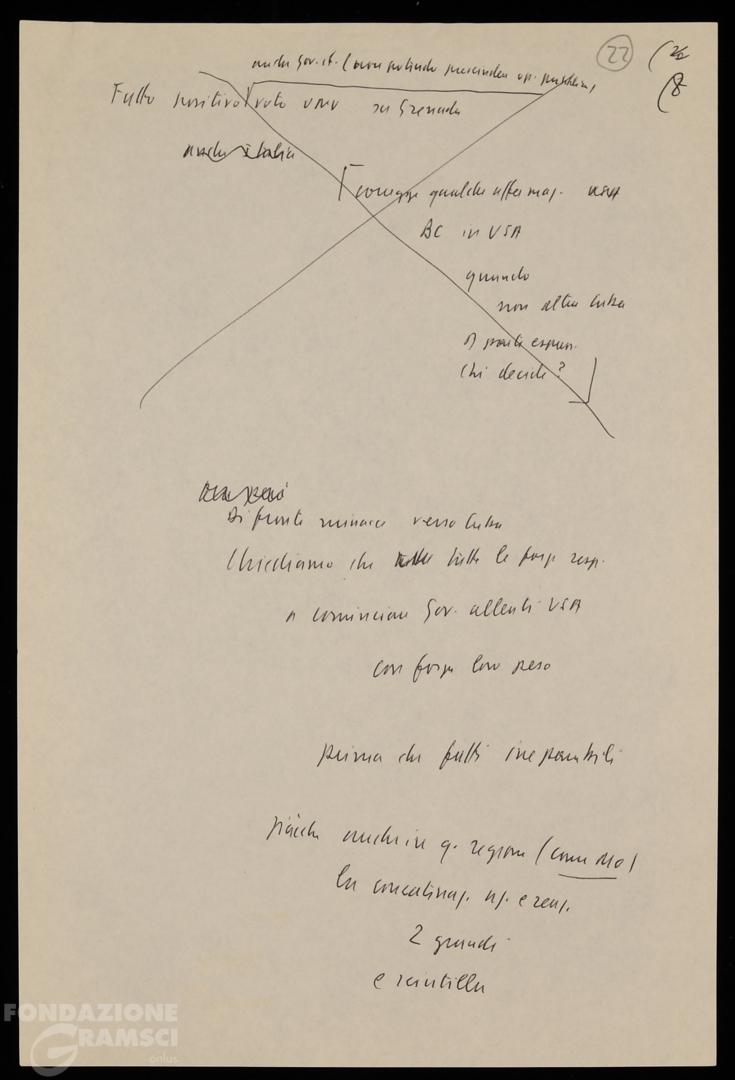 22
anche Gov. it. (non potendo prescindere op. pubblica)
Fatto positivo voto ONU su Grenada
anche Italia
corregge qualche affermaz. USA
AC in USA
quando
non altra Cuba
Chi decide?
Di fronte minacce verso Cuba
Chiediamo che tutte le forze resp.
a cominciare Gov. alleati USA
con forza loro peso
prima che fatti irreparabili
giacché anche in q. regione (come MO)
la concatenaz. az. e reaz.
2 grandi
e scintilla
FONDAZIONE
GRAMSCI
onlus